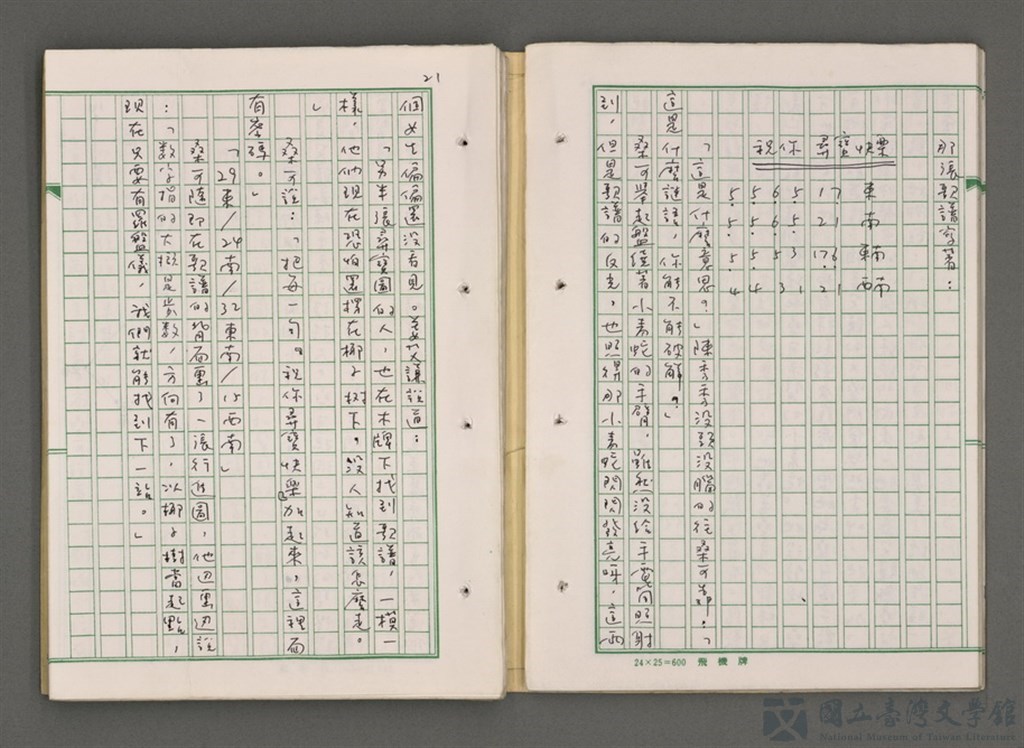 那張歌譜寫著：
祝你尋寶快樂
東 南 東南 西南
17 21 176 21
5 5 3 1
6 6 5 3
5 5 5 4
5 5 5 4
「這是什麼意思？」陳秀秀沒頭沒腦的往桑可靠，「
這是什麼謎語，你能不能破解？」
桑可舉起盤繞著小青蛇的手臂，雖然沒給手電筒照射
到，但是歌譜的反光，也照得那小青蛇閃閃發亮呀，這兩
24×25=600 飛機牌
21
個女生偏偏還沒看見。姜文謙說道：
「另半張尋寶圖的人，也在木牌下找到歌譜，一模一
樣，他們現在恐怕還楞在椰子樹下，沒人知道該怎麼走。
」
桑可說：「把每一句。祝你尋寶快樂加起來，這裡面
有答碼。」
「29東/24南/32東南/15西南」
桑可隨即在歌譜的背面畫了一張行進圖，他迎畫迎說
：「數字指的大概是步數，方向有了，以椰子樹當起點，
現在只要有羅盤儀，我們就能找到下一站。」
國立臺灣文學館
National Museum of Taiwan Literature